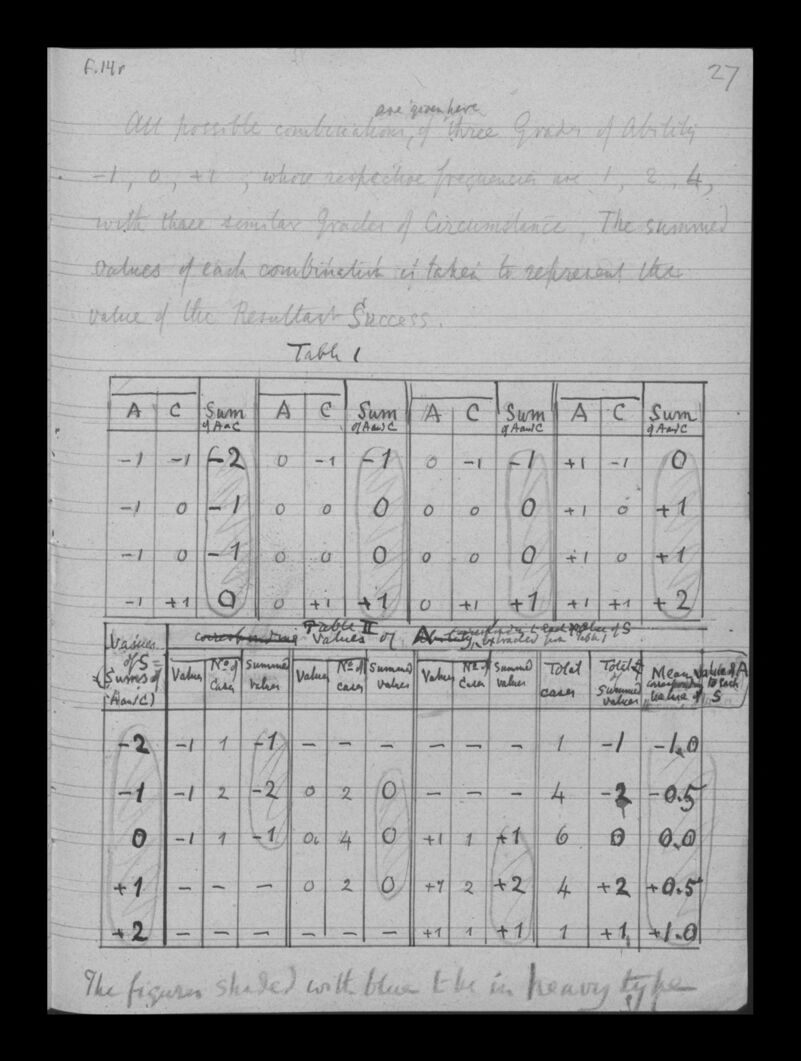 f.14r
27
are given here
All possible combinations, of three Grades of Ability
-1, 0, +1, whose respective frequencies are 1, 2, 4,
with three similar Grades of Circumstance, The summed
values of each combination is taken to represent the
value of the Resultant Success.
Table 1
A C Sum of A and C A C Sum of A and C A C Sum of A and C A C Sum of A and C
-1 -1 -2 0 -1 -1 0 -1 -1 +1 -1 0
-1 0 -1 0 0 0 0 0 0 +1 0 +1
-1 0 -1 0 0 0 0 0 0 +1 0 +1
-1 +1 0 0 +1 +1 0 +1 +1 +1 +1 +2
Table II
corresponding Values of Ability, extracted from Table I
Values of S = (Sums of A and C) Values No of Cases Summed values Values No of cases Summed values Values No of Cases Summed values Total cases Total of Summed values Mean values of A corresponding to each value of S
-2 -1 1 -1 – – – – – – 1 -1 -1.0
-1 -1 2 -2 0 2 0 – – – 4 -2 -0.5
0 -1 1 -1 0 4 0 +1 1 +1 6 0 0.0
+1 – – – 0 2 0 +1 2 +2 4 +2 +0.5
+2 – – – – – – +1 1 +1 1 +1 +1.0
The figures shaded with blue to be in heavy type